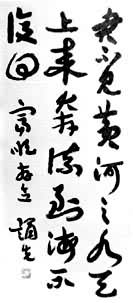 君不見黃河之水天
上來奔流到海不
復回